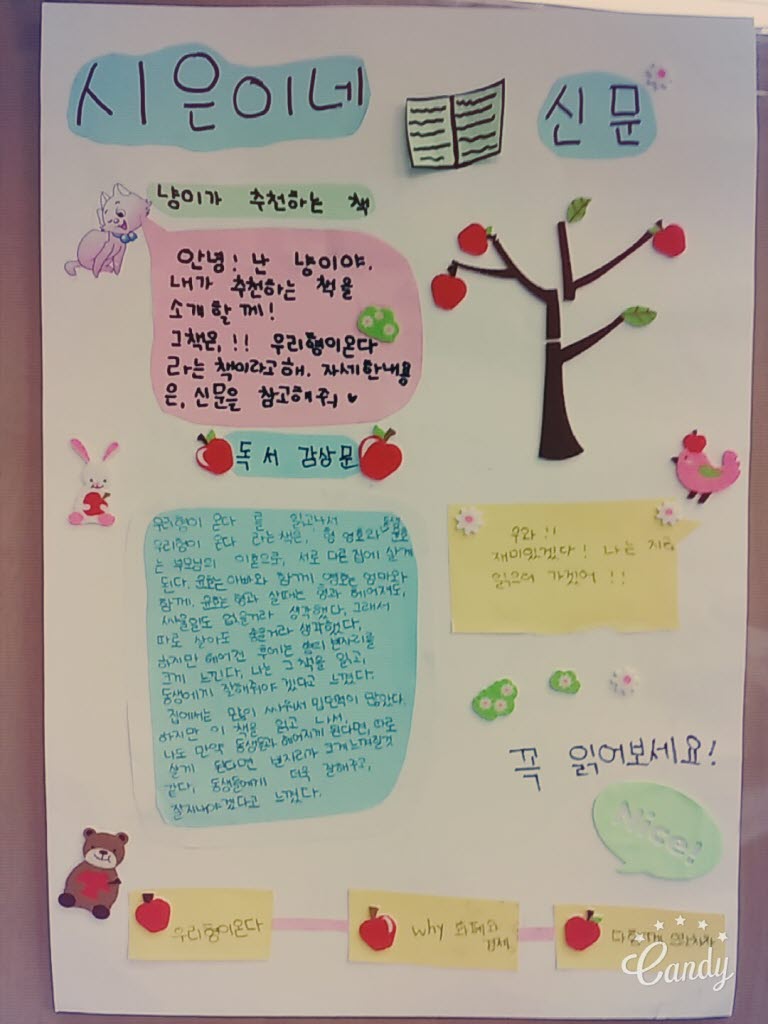 시은이네 신문
냥이가 추천하는 책
안녕! 난 냥이야.
내가 추천하는 책을
소개할께!
그책은, !! 우리형이온다
라는 책이라고해. 자세한내용
은, 신문을 참고해줘 ♥
독서 감상문
우리형이 온다 를 읽고나서
우리형이 온다 라는책은, 형 영호와
는 부모님의 이혼으로, 서로 다른집에 살게
된다. 윤호는 아빠와 함께 영호는 엄마와
함께. 윤호는 형과 살때는 형과 헤어져도,
싸울일도 없을거라 생각했다. 그래서
따로 살아도 좋을거라 생각했다.
하지만 헤어진 후에는 형의 빈자리를
크게 느낀다. 나는 그 책을 읽고,
동생에게 잘해줘야 겠다고 느꼈다.
집에서는 많이 싸워서 많았다.
하지만 이 책을 읽고 나서,
나도 만약 동생들과 헤어지게 된다면, 따로
살게 된다면 빈자리가 크게느껴질것
같다. 동생들에게 더욱 잘해주고,
잘지내야겠다고 느꼈다.
우와!!
재미있겠다! 나는 지금
읽으러 가겠어!!
꼭 읽어보세요!
Nice!
우리형이온다
why 화폐와
경제
Candy